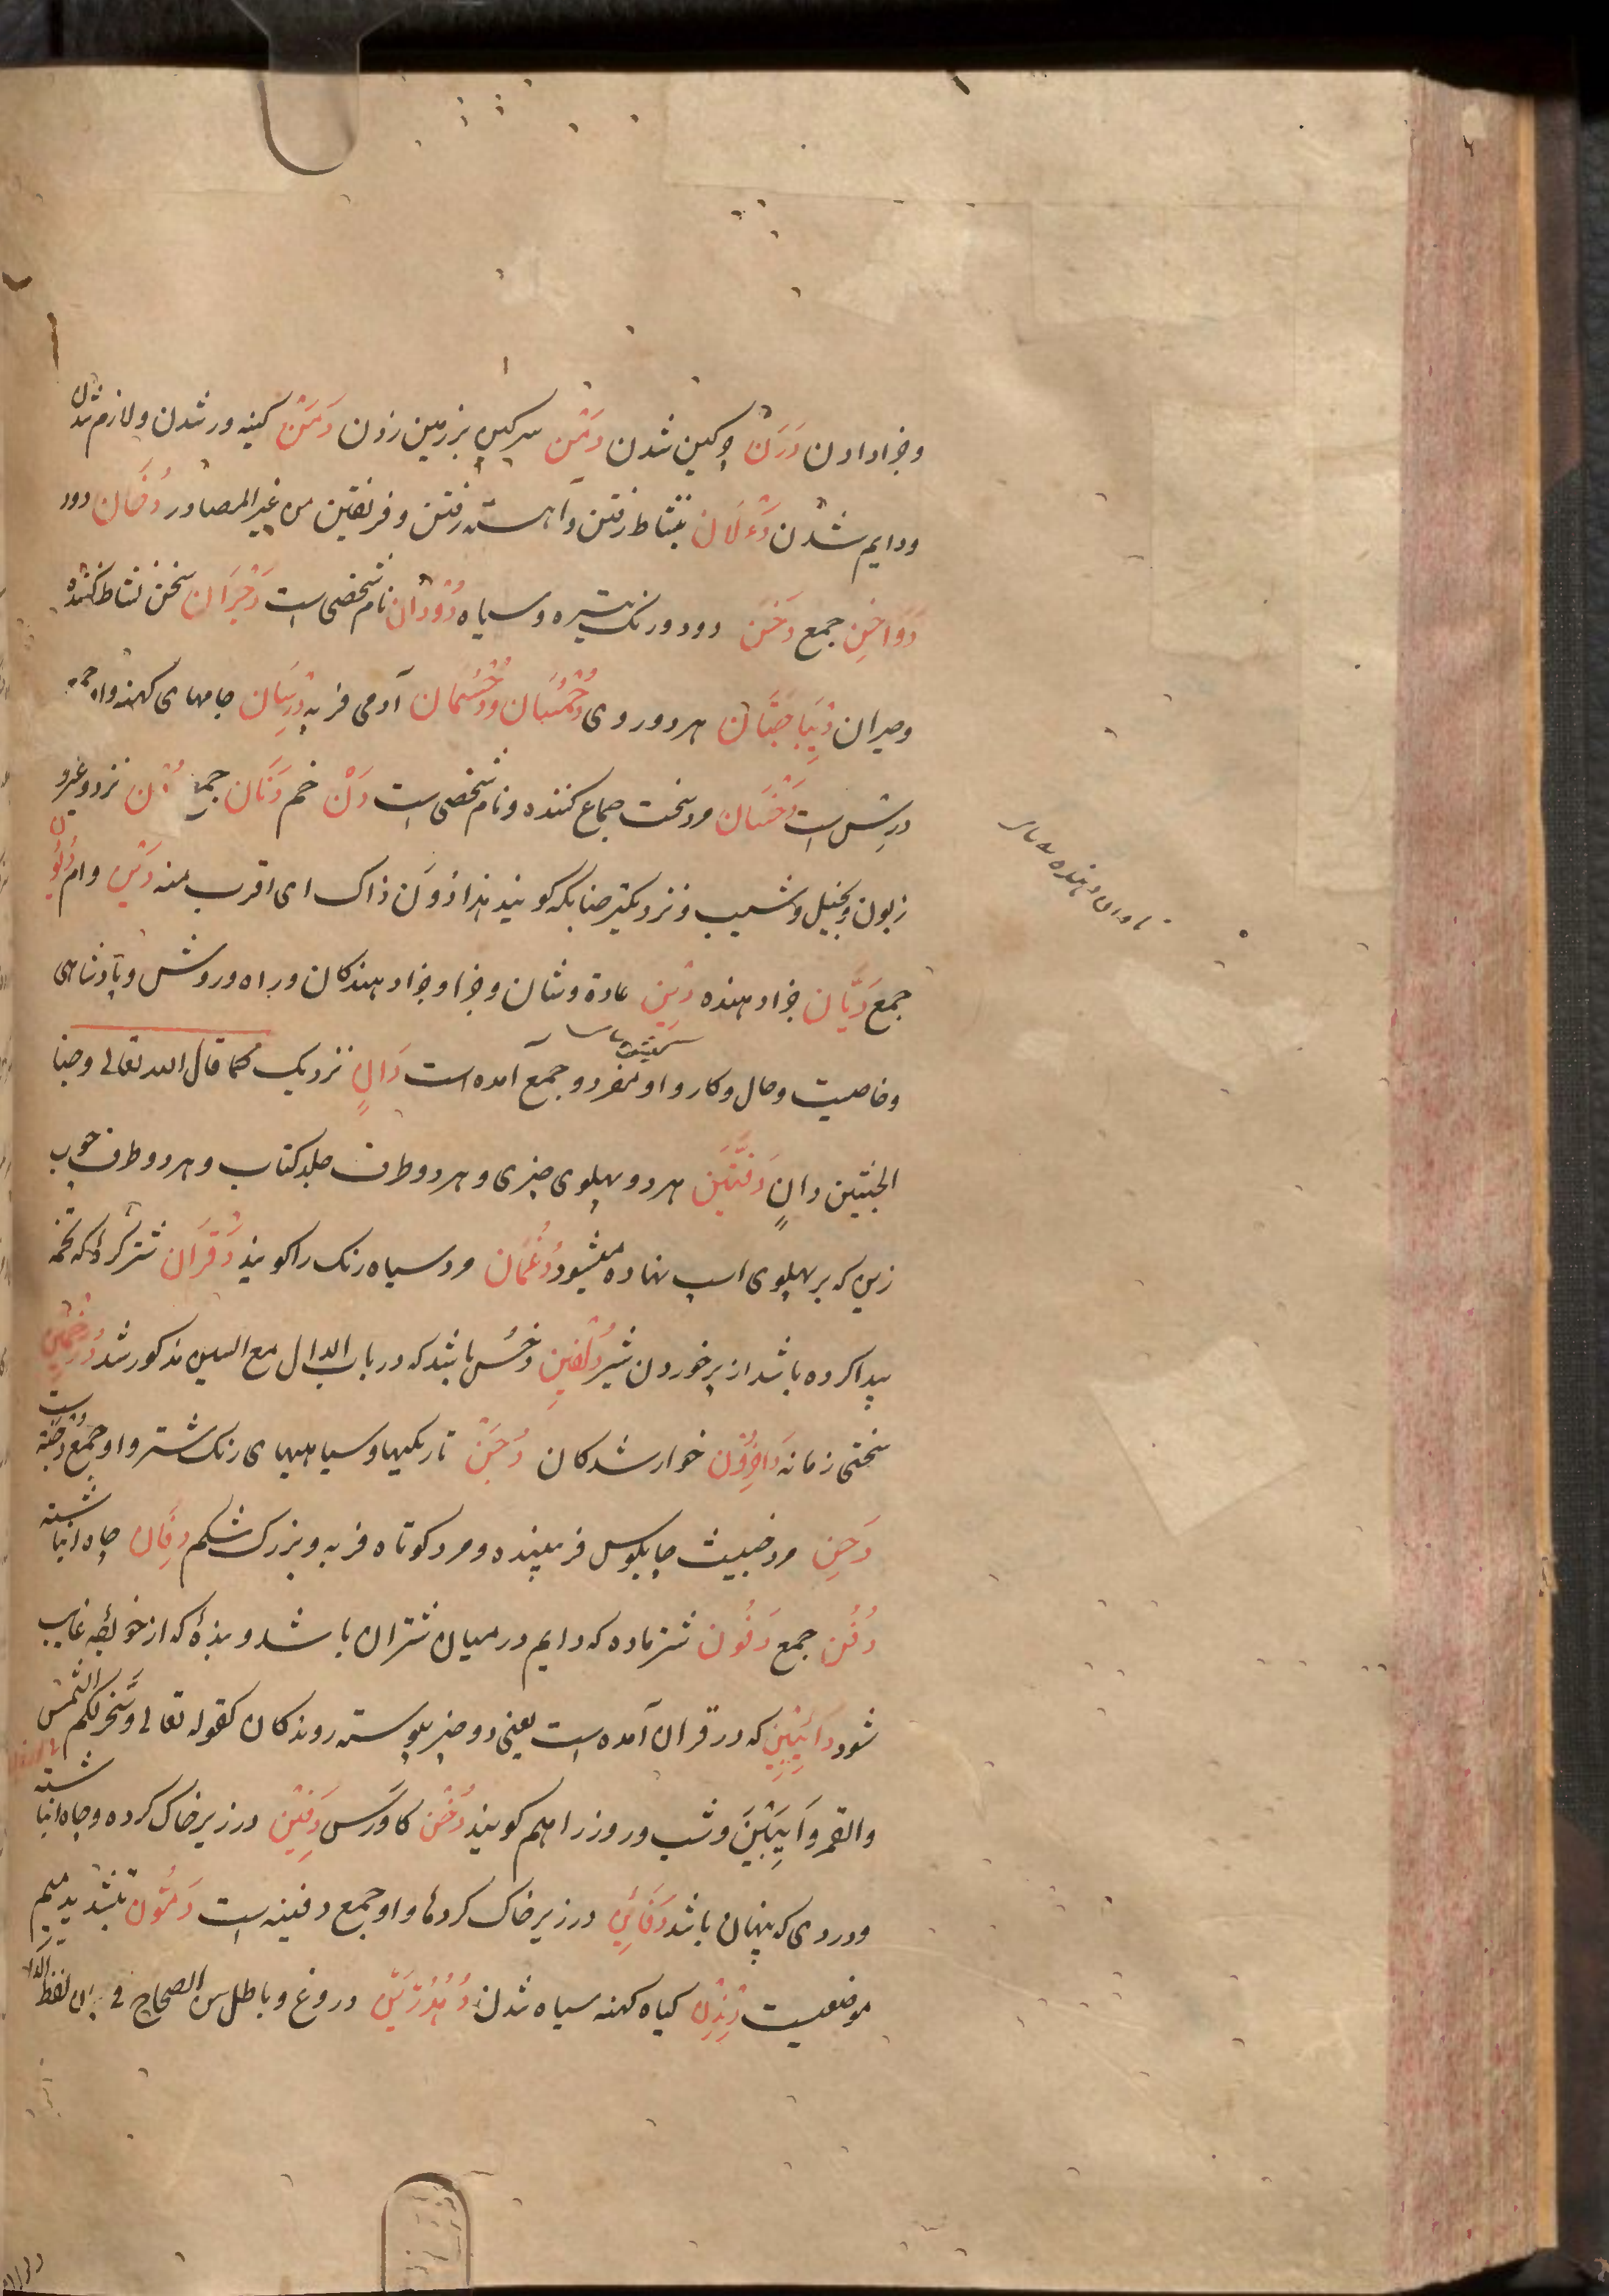 وجزا دادن دَرَن چرکین شدن دَمْن سرکین بزمین زدن دَمَن کینه ور شدن ولازم شدن
ودایم شدن دَءَلَان بنشاط رفتن وآهسته رفتن وفریفتن من غیر المصادر دُخَان دود
دَوَاخِن جمع دَخَن دود ورنک تیره وسیاه دُودَان نام شخصی است دَجْرَان سخن نشاط کننده
وحیران دِیبَاجَتَان هر دو روی دُحْمُسَان ودُحْسُمَان آدمی فربه دِرْسَان جامهای کهنه واو جمع
دِرس است دَخْشَان مرد سخت جماع کننده ونام شخصی است دَنّ خم دَنَان جمع دُون نزد وغیر و
زبون وبخیل ونشیب ونزدیکتر چنانکه کویند هذا دُونَ ذاک ای اقرب منه دَین وام دُیُون
جمع دَیَّان جزا دهنده دِین عادة وشان وجزا وجزا دهندکان وراه وروش وپادشاهی
وخاصیت وحال وکار واو مفرد وجمع آمده است دَانٍ نزدیک کما قال الله تعالی وجنا
الجنتین دانٍ دَفَّتَین هر دو پهلوی چیزی وهر دو طرف جلد کتاب وهر دو طرف چوب
زین که بر پهلوی اسپ نهاده میشود دُغْمَان مرد سیاه رنک را کویند دَقْرَان شتر کره که تخمه
پیدا کرده باشد از پر خوردن شیر دُلْفِین دخس باشد که در باب الدال مع السین مذکور شد دُرَخْمِین
سختی زمانه دَاخِرُون خوار شدکان دُجَن تاریکیها وسیاهیهای رنک شتر واو جمع دُجْنه است
دَحِن مرد خبیث چاپلوس فریبنده ومرد کوتاه فربه وبزرک شکم دِفَان چاه انباشته
دُفُن جمع دَفُون شتر ماده که دایم در میان شتران باشد وبنده که از خواجه غایب
شود دَائِبَین که در قران آمده است یعنی دو چیز پیوسته روندکان کقوله تعالی وسَخَّر لکم الشمس
والقمر دَائِبَین وشب وروز را هم کویند دُخْن کاورس دَفِین در زیر خاک کرده وچاه انباشته
ودردی که پنهان باشد دَفَائِن در زیر خاک کردها واو جمع دفینه است دَمُّون بتشدید میم
موضعیست دِنْدِن کیاه کهنه سیاه شدن دُهْدُرَّین دروغ وباطل من الصحاح فی بیان لفظ الدال